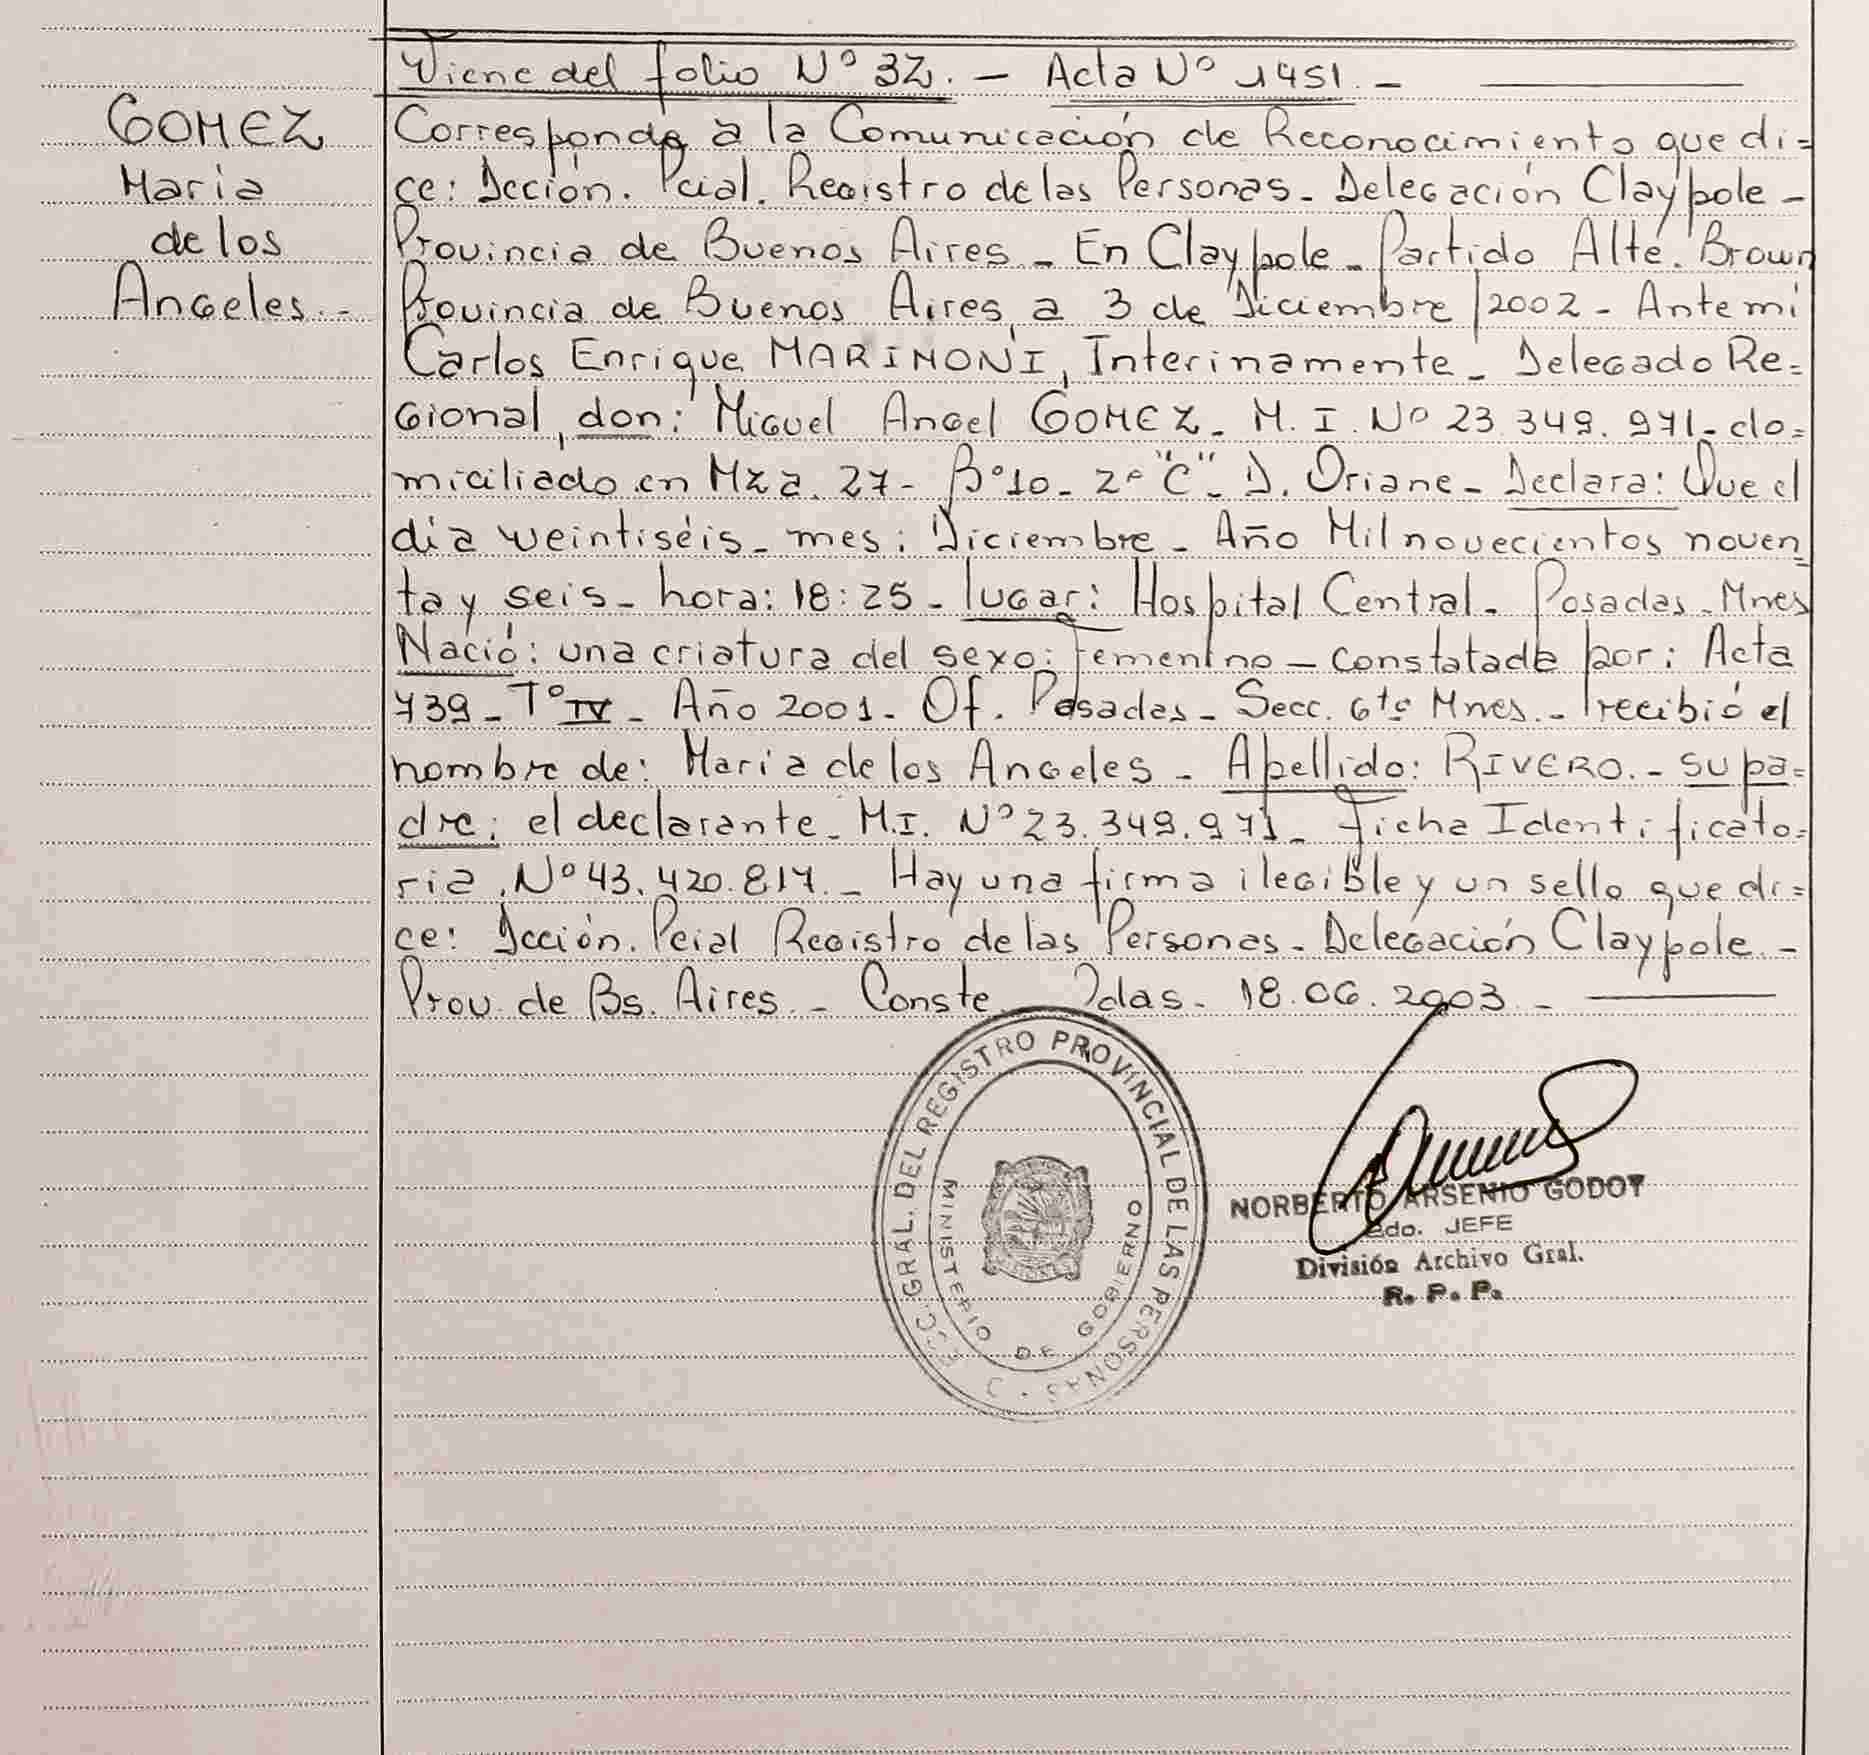 Viene del folio Nº 32. - Acta Nº 1451. -
GOMEZ
Maria
de los
Angeles. -
Corresponde a la Comunicación de Reconocimiento que di=
ce: Dcción. Pcial. Registro de las Personas - Delegación Claypole -
Provincia de Buenos Aires - En Claypole - Partido Alte. Brown
Provincia de Buenos Aires, a 3 de Diciembre /2002 - Ante mí
Carlos Enrique MARIMONI, Interinamente - Delegado Re=
gional, don: Miguel Angel GOMEZ - M. I. Nº 23.349.971 - do=
miciliado en Mza. 27 - Bº 10 - 2º "C" - D. Oriane - Declara: Que el
día veintiséis - mes: Diciembre - Año Mil novecientos noven
ta y seis - hora: 18:25 - lugar: Hospital Central - Posadas - Mnes
Nació: una criatura del sexo: femenino - constatada por: Acta
739 - Tº IV - Año 2001 - Of. Posadas - Secc. 6ta Mnes. - recibió el
nombre de: Maria de los Angeles - Apellido: RIVERO. - su pa=
dre: el declarante - M.I. Nº 23.349.971 - Ficha Identificato=
ria Nº 43.420.817. - Hay una firma ilegible y un sello que di=
ce: Dcción. Pcial Registro de las Personas - Delegación Claypole. -
Prov. de Bs. Aires. - Conste Pdas - 18.06.2003. -
GRAL. DEL REGISTRO PROVINCIAL DE LAS PERSONAS
MINISTERIO DE GOBIERNO
NORBERTO ARSENIO GODOY
JEFE
División Archivo Gral.
R. P. P.